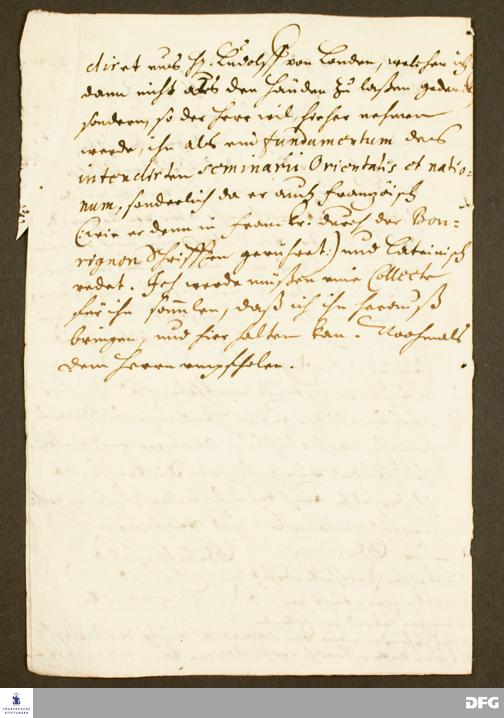 diret uns H. Ludolff von Londen, welchen ich
dann nicht aus den händen zu laßen gedencke
sondern, so der Herr wil, hieher nehmen
werde, ihn als ein fundamentum des
intendirten Seminarii Orientalis et natio-
num, sonderlich da er auch Französisch
(wie er denn in Franckr. durch der Bou-
rignon Schrifften gerühret:) und Lateinisch
redet. Ich werde müßen eine Collecte
für ihn samlen, daß ich ihn herauß
bringen, und hier halten kan. Nochmals
dem Herrn empfohlen.
FRANCKESCHE
STIFTUNGEN
DFG